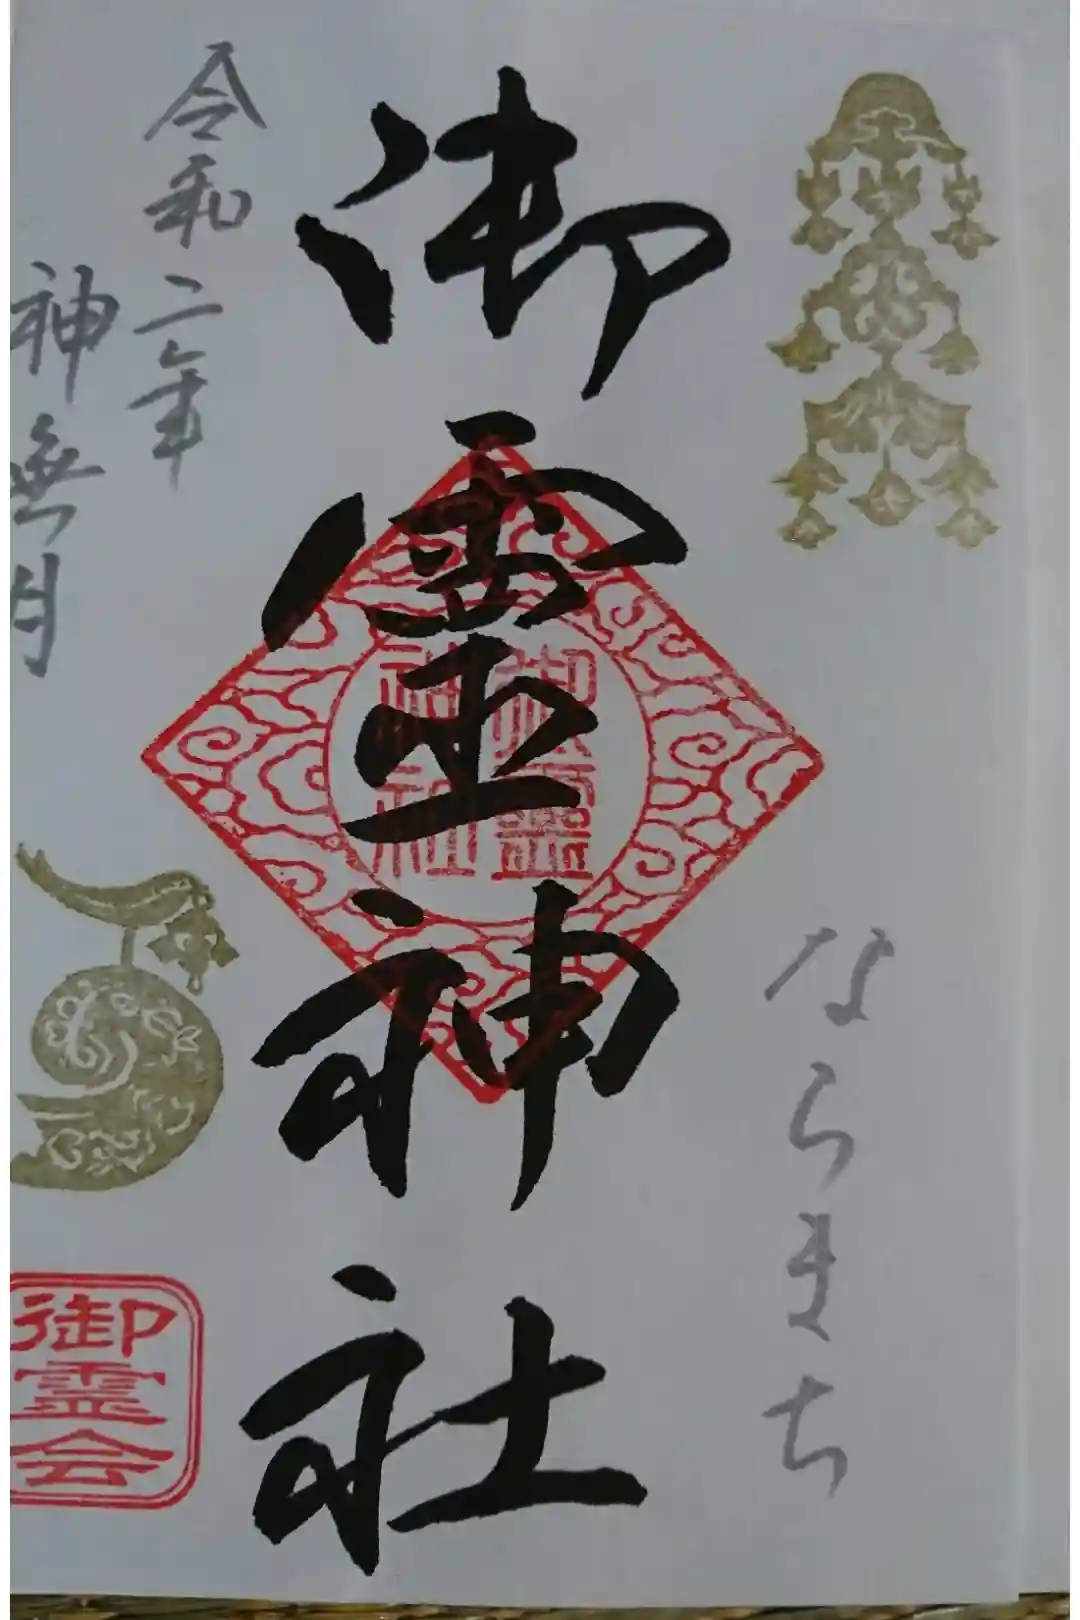 ならまち
御霊神社
御霊
神社
令和二年
神無月
御霊会